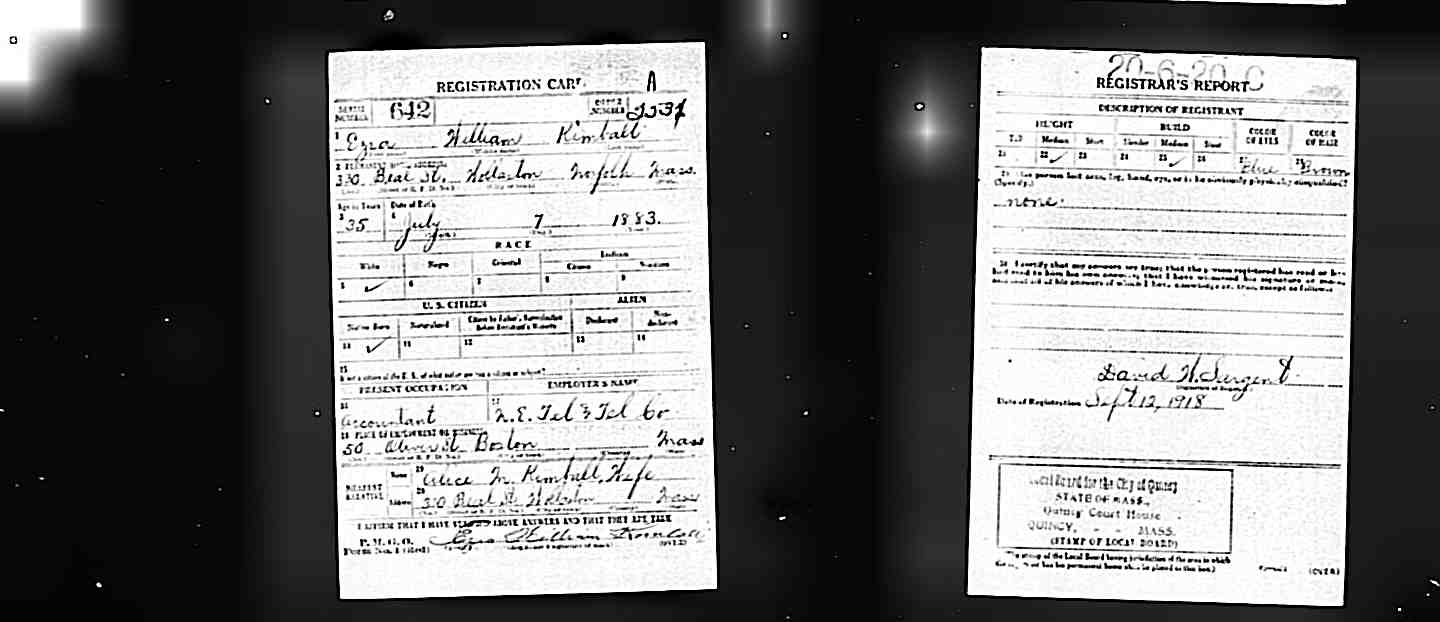 REGISTRATION CARD A
SERIAL NUMBER 642 ORDER NUMBER
1 Ezra William Kimball
2 PERMANENT HOME ADDRESS
Beal St. Wollaston Norfolk Mass.
Age in Years Date of Birth
3 35 4 July 7 1883.
RACE
White Negro Oriental Indian
Citizen
5 ✓ 6 7 8 9
U. S. CITIZEN ALIEN
Native Born Naturalized Citizen by Father's Naturalization Before Registrant's Majority Declarant Non-declarant
10 ✓ 11 12 13 14
15
If not a citizen of the U. S., of what nation are you a citizen or subject?
PRESENT OCCUPATION EMPLOYER'S NAME
16 Accountant 17 N.E. Tel & Tel Co
18 PLACE OF EMPLOYMENT OR BUSINESS
50 Oliver St. Boston Mass
NEAREST RELATIVE Name 19 Alice M. Kimball, Wife
Address 20 Beal St. Wollaston Mass
I AFFIRM THAT I HAVE VERIFIED ABOVE ANSWERS AND THAT THEY ARE TRUE
P. M. G. O.
Form No. 1 (Red) Ezra William Kimball
(OVER)
20-6-20 C
REGISTRAR'S REPORT
DESCRIPTION OF REGISTRANT
HEIGHT BUILD COLOR OF EYES COLOR OF HAIR
Tall Medium Short Slender Medium Stout
21 22 ✓ 23 24 25 ✓ 26 27 Blue 28 Brown
29 Has person lost arm, leg, hand, eye, or is he obviously physically disqualified?
(Specify.)
none.
30 I certify that my answers are true; that the person registered has read or has
had read to him his own answers; that I have witnessed his signature or mark,
and that all of his answers of which I have knowledge are true, except as follows:
David W. Sargent
Date of Registration Sept 12, 1918
Local Board for the City of Quincy
STATE OF MASS.
Quincy Court House
QUINCY, - - MASS.
(STAMP OF LOCAL BOARD)
(The stamp of the Local Board having jurisdiction of the area in which
the registrant has his permanent home shall be placed in this box.)
(OVER)